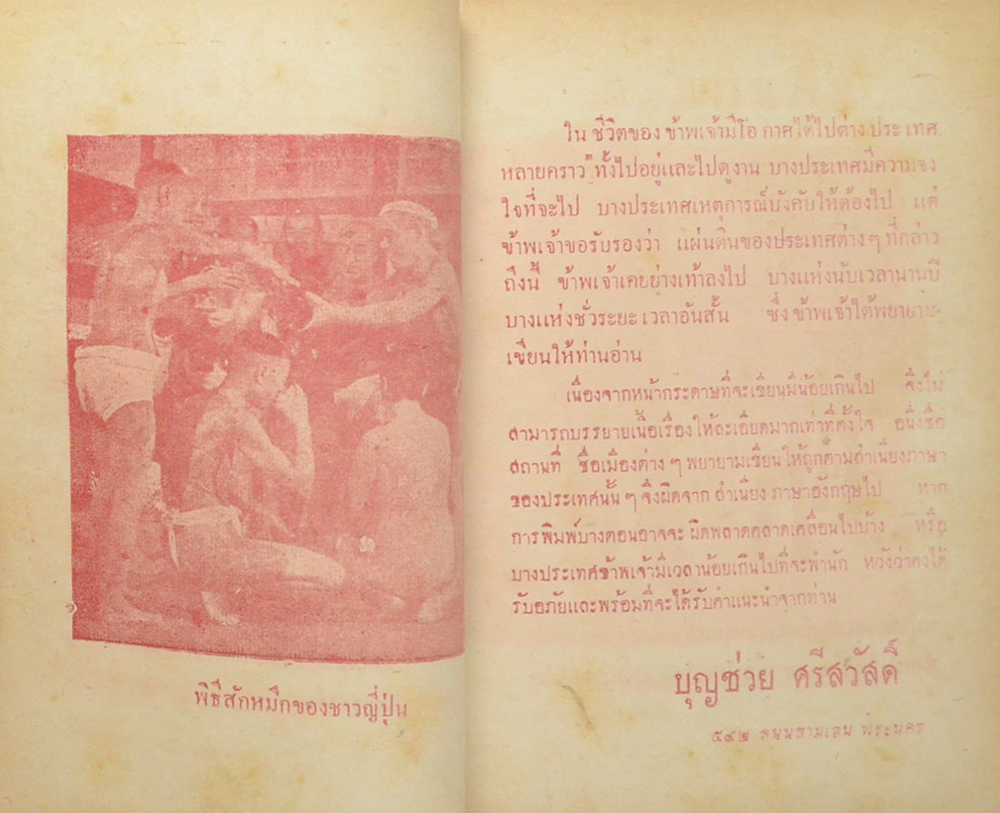 พิธีสักหมึกของชาวญี่ปุ่น
ใน ชีวิตของ ข้าพเจ้ามีโอ กาศได้ไปต่าง ประ เทศ
หลายคราว ทั้งไปอยู่และไปดูงาน บางประเทศมีความจง
ใจที่จะไป บางประเทศเหตุการณ์บังคับให้ต้องไป แต่
ข้าพเจ้าขอรับรองว่า แผ่นดินของประเทศต่าง ๆ ที่กล่าว
ถึงนี้ ข้าพเจ้าเคยย่างเท้าลงไป บางแห่งนับเวลานานปี
บางแห่งชั่วระยะ เวลาอันสั้น ซึ่ง ข้าพเจ้าได้พยายาม-
เขียนให้ท่านอ่าน
เนื่องจากหน้ากระดาษที่จะเขียนมีน้อยเกินไป จึงไม่
สามารถบรรยายเนื้อเรื่องให้ละเอียดมากเท่าที่ตั้งใจ อนึ่งชื่อ
สถานที่ ชื่อเมืองต่าง ๆ พยายามเขียนให้ถูกตามสำเนียงภาษา
ของประเทศนั้น ๆ จึงผิดจาก สำเนียง ภาษาอังกฤษไป หาก
การพิมพ์บางตอนอาจจะ ผิดพลาดคลาดเคลื่อนไปบ้าง หรือ
บางประเทศข้าพเจ้ามีเวลาน้อยเกินไปที่จะพำนัก หวังว่าคงได้
รับอภัยและพร้อมที่จะได้รับคำแนะนำจากท่าน
บุญช่วย ศรีสวัสดิ์
๕๔๒ ถนนสามเสน พระนคร